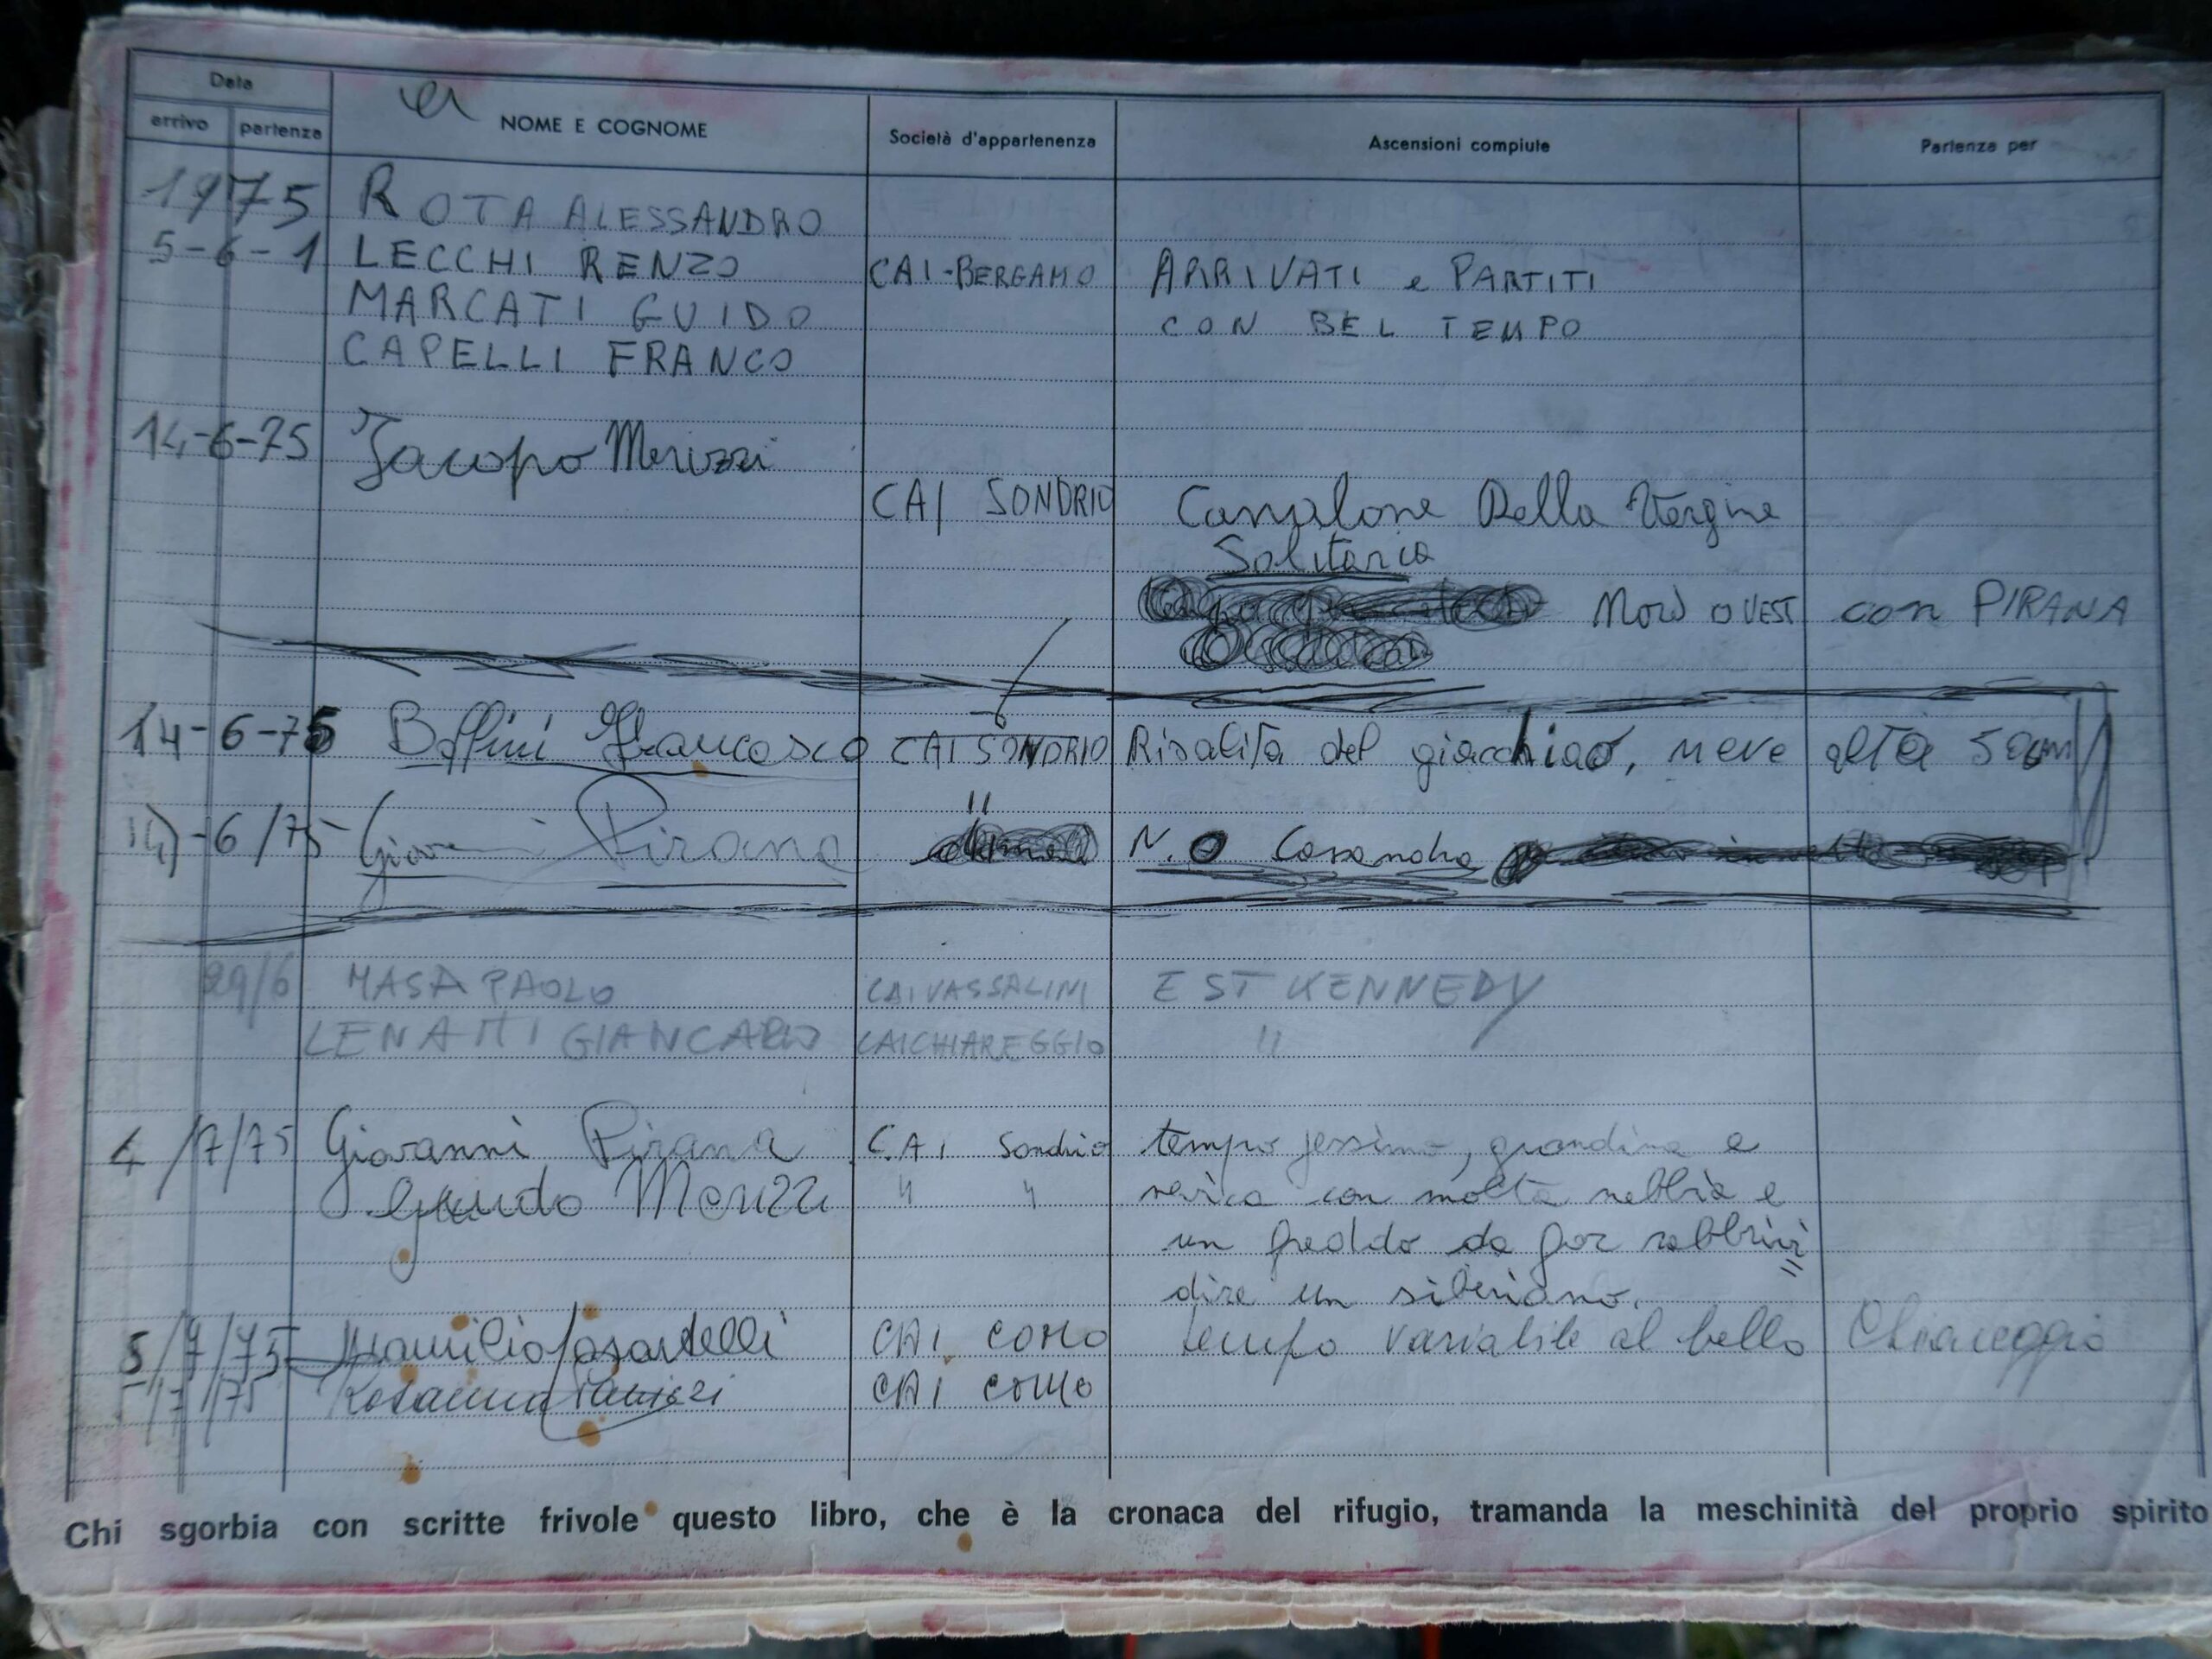 Data
arrivo partenza NOME E COGNOME Società d'appartenenza Ascensioni compiute Partenza per
1975 ROTA ALESSANDRO
5-6-1 LECCHI RENZO CAI-BERGAMO ARRIVATI e PARTITI
MARCATI GUIDO CON BEL TEMPO
CAPELLI FRANCO
14-6-75 Jacopo Merizzi
CAI SONDRIO Canalone Della Vergine
Solitaria
Nord OVEST con PIRANA
14-6-75 Francesco CAI SONDRIO Risalita del giacchiao, neve alta 50cm
14-6/75 Giovanni Pirana " N.O Cassandra
29/6 MASA PAOLO CAI VASSALINI EST KENNEDY
LENATTI GIANCARLO CAI CHIAREGGIO "
4/7/75 Giovanni Pirana C.A.I Sondrio tempo pessimo, grandina e
Guido Merizzi " " nevica con molta nebbia e
un freddo da far rabbrivi
dire un siberiano.
5/7/75 CAI COMO tempo variabile al bello Chiareggio
5/7/75 Rosanna CAI COMO
Chi sgorbia con scritte frivole questo libro, che è la cronaca del rifugio, tramanda la meschinità del proprio spirito